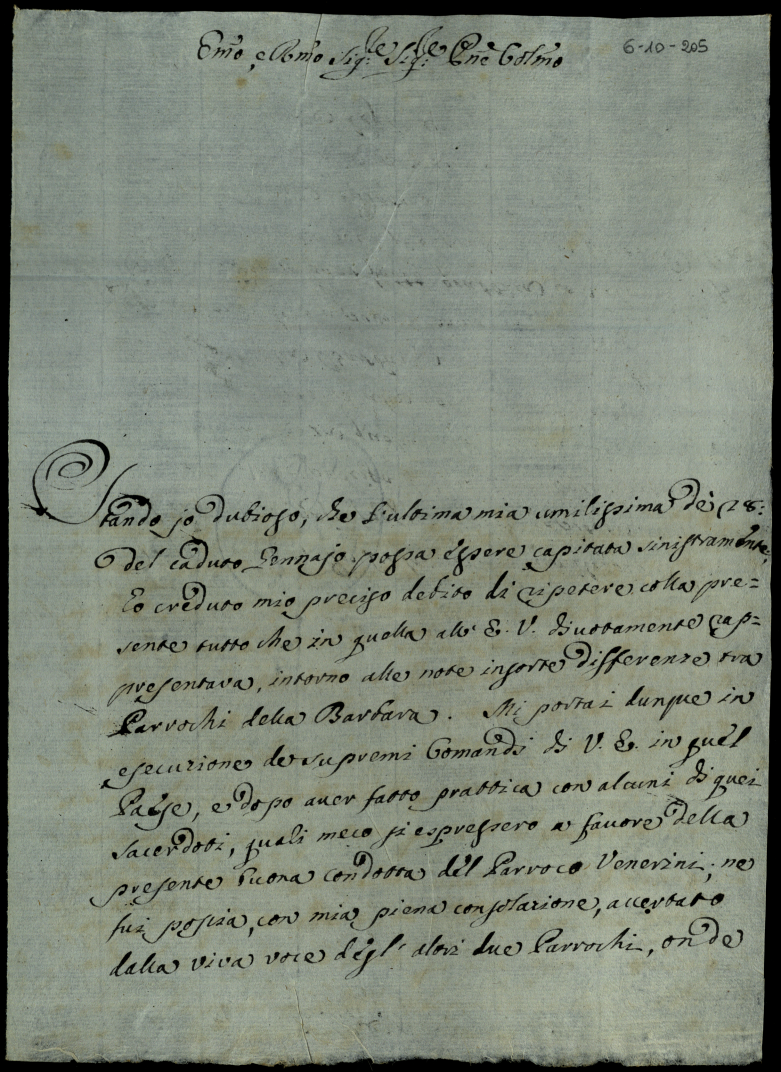 Em̃o, e Rm̃o Sig:re Sig:re Pñe Colm̃o
6-10-205
Stando io dubioso, che l'ultima mia umilissima de' 28:
del caduto Gennajo possa essere capitata sinistramente,
Eo creduto mio preciso debito di ripetere colla pre=
sente tutto che in quella all' E. V. divotamente rap=
presentava, intorno alle note insorte differenze tra
Parrochi della Barbara. Mi portai dunque in
esecuzione de supremi Comandi di V. E. in quel
Paese, e dopo aver fatto prattica con alcuni di quei
sacerdoti, quali meco si espressero a favore della
presente buona condotta del Parroco Venerini; ne
fui poscia, con mia piena consolazione, accertato
dalla viva voce degl' altri due Parrochi, onde